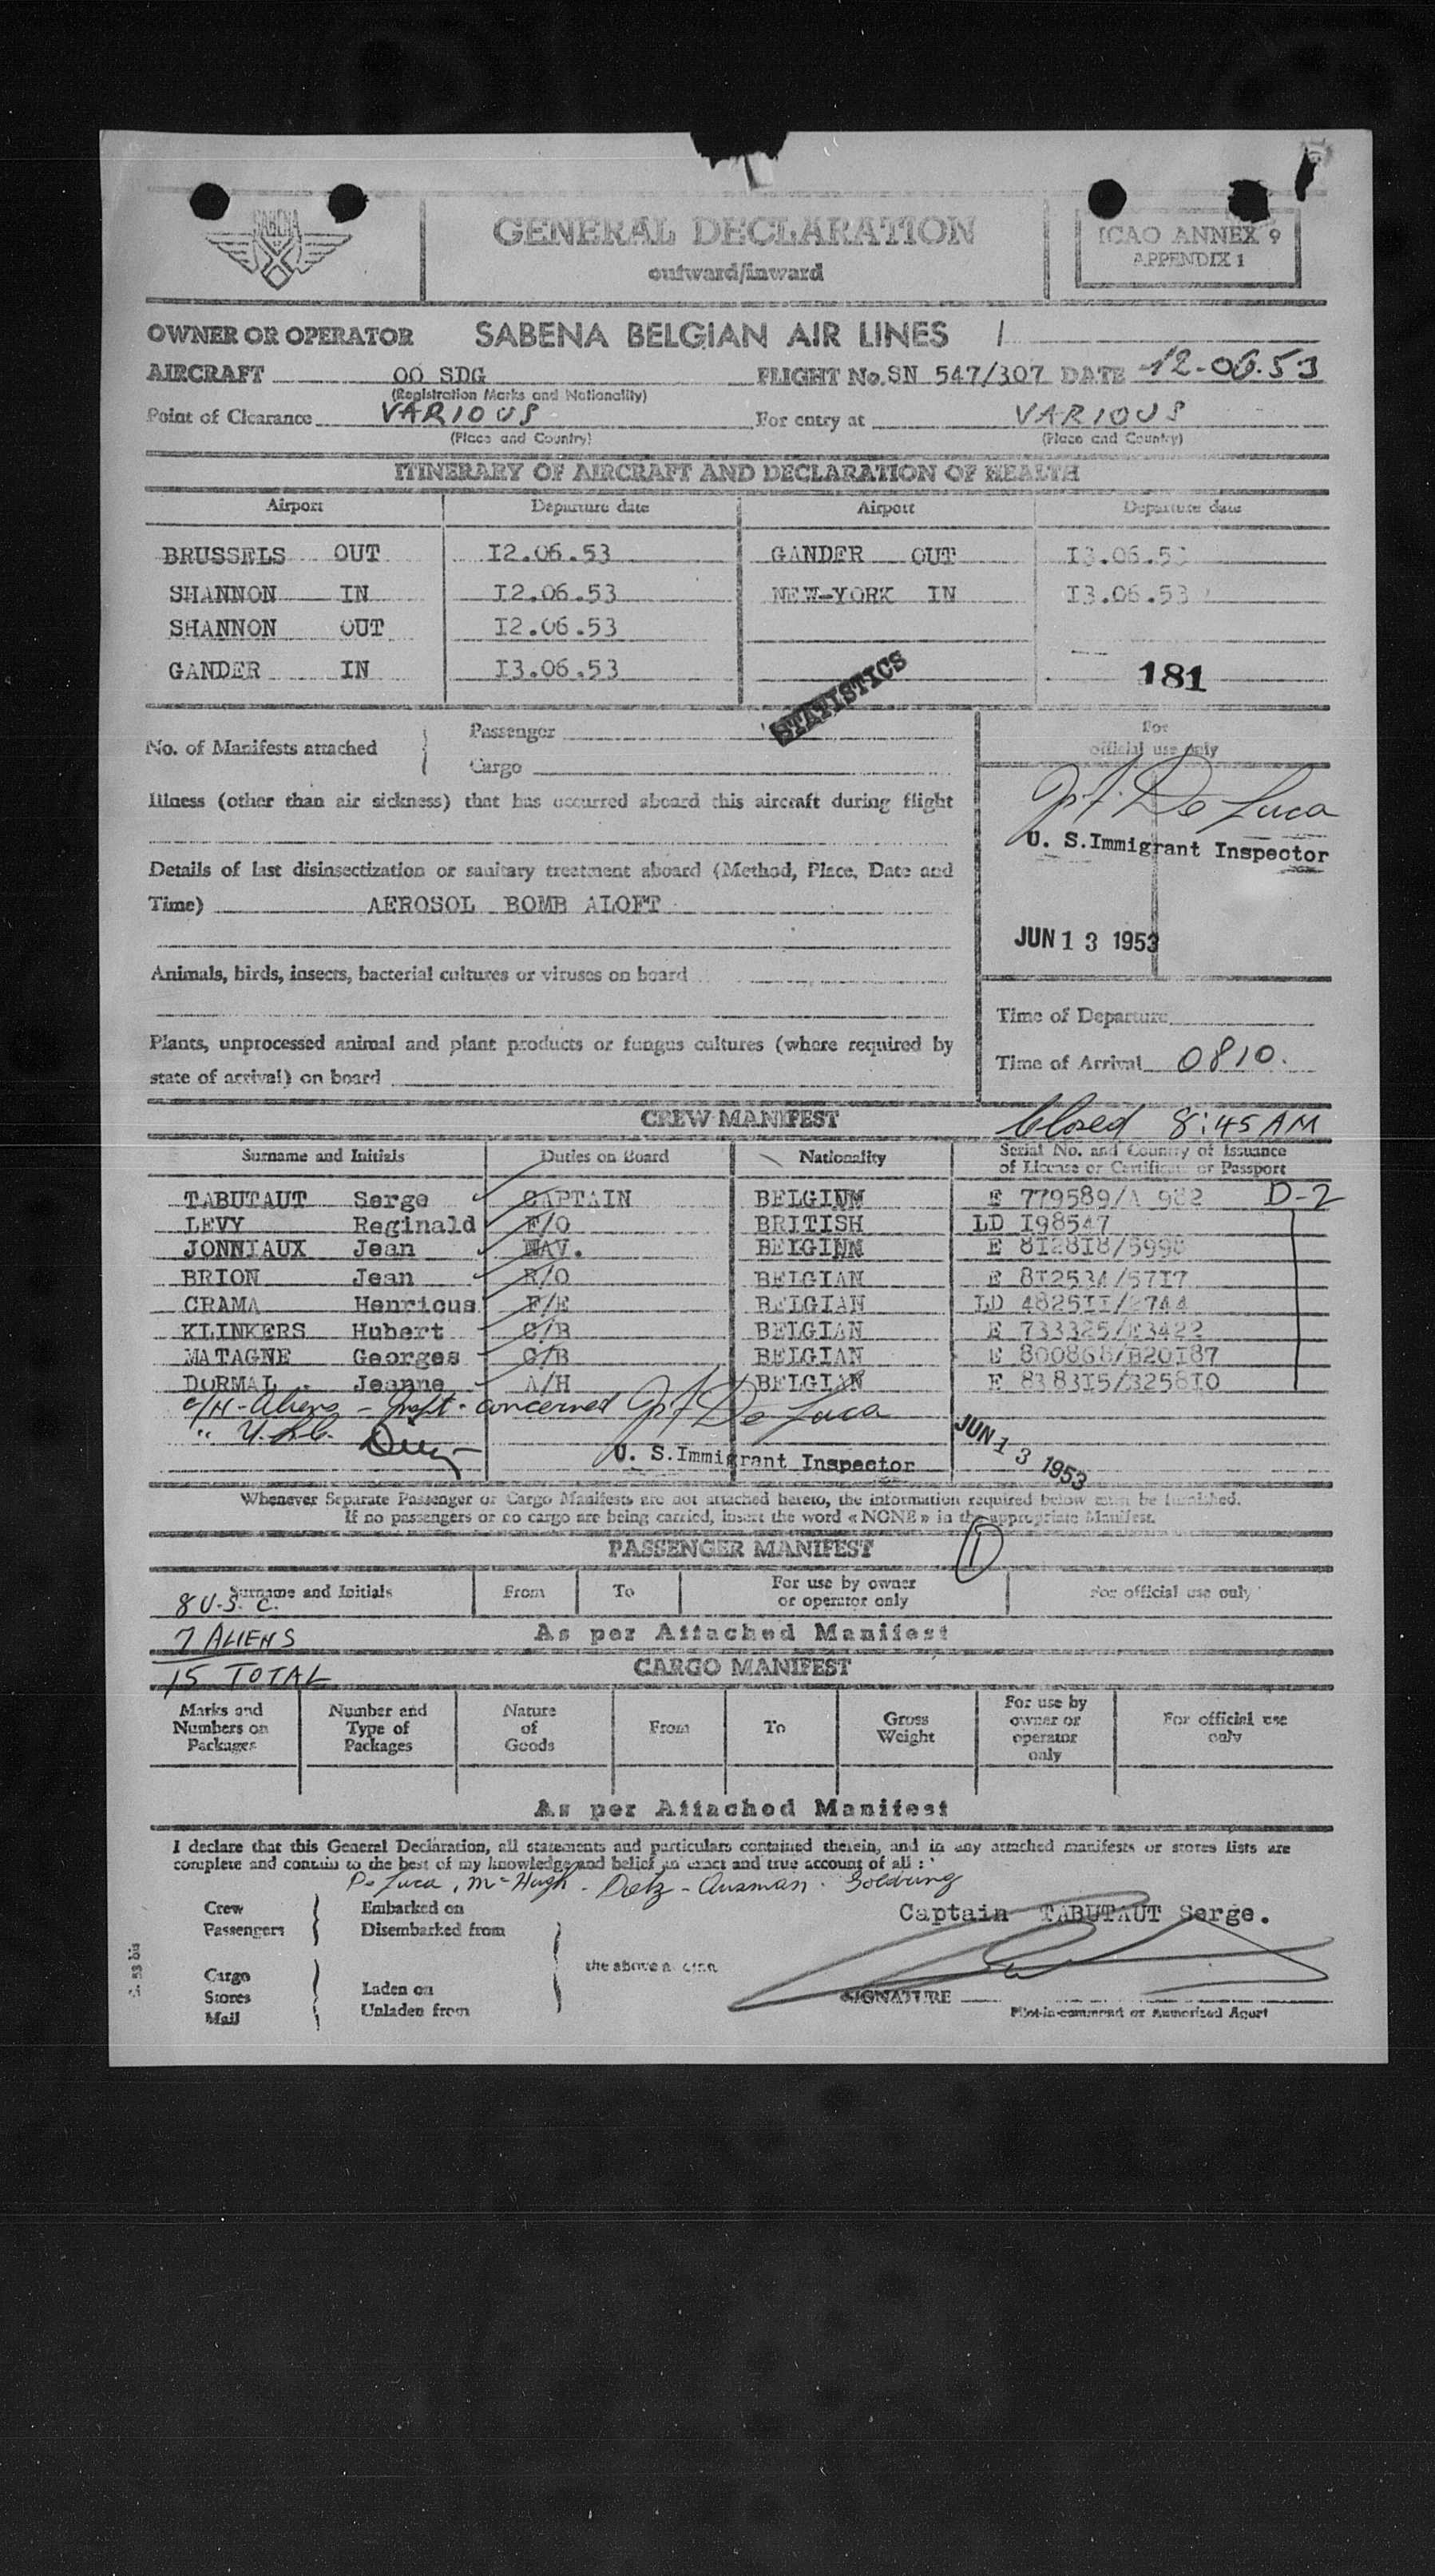 SABENA
GENERAL DECLARATION
outward/inward
ICAO ANNEX 9
APPENDIX 1
OWNER OR OPERATOR SABENA BELGIAN AIR LINES
AIRCRAFT OO SDG FLIGHT No. SN 547/307 DATE 12.06.53
(Registration Marks and Nationality)
Point of Clearance VARIOUS For entry at VARIOUS
(Place and Country) (Place and Country)
ITINERARY OF AIRCRAFT AND DECLARATION OF HEALTH
Airport Departure date Airport Departure date
BRUSSELS OUT I2.06.53 GANDER OUT I3.06.53
SHANNON IN I2.06.53 NEW-YORK IN I3.06.53
SHANNON OUT I2.06.53
GANDER IN I3.06.53
181
STATISTICS
No. of Manifests attached
Passenger
Cargo
For
official use only
Illness (other than air sickness) that has occurred aboard this aircraft during flight
De Luca
U. S. Immigrant Inspector
Details of last disinsectization or sanitary treatment aboard (Method, Place, Date and
Time) AEROSOL BOMB ALOFT
JUN 13 1953
Animals, birds, insects, bacterial cultures or viruses on board
Time of Departure
Plants, unprocessed animal and plant products or fungus cultures (where required by
state of arrival) on board
Time of Arrival 0810.
CREW MANIFEST
Closed 8:45 AM
Surname and Initials Duties on Board Nationality Serial No. and Country of Issuance
of License or Certificate or Passport
TABUTAUT Serge CAPTAIN BELGIUM E 779589/A 982 D-2
LEVY Reginald F/O BRITISH LD I98547
JONNIAUX Jean NAV. BELGINN E 8I28I8/5998
BRION Jean R/O BELGIAN E 8I2534/57I7
CRAMA Henricus F/E BELGIAN LD 4825II/2744
KLINKERS Hubert C/B BELGIAN E 733325/E3422
MATAGNE Georges C/B BELGIAN E 800868/B20I87
DORMAL Jeanne A/H BELGIAN E 8383I5/3258I0
Aliens concerned De Luca
U. S. Immigrant Inspector
JUN 13 1953
Whenever Separate Passenger or Cargo Manifests are not attached hereto, the information required below must be furnished.
If no passengers or no cargo are being carried, insert the word « NONE » in the appropriate Manifest.
PASSENGER MANIFEST
1
Surname and Initials From To For use by owner
or operator only For official use only
8 U.S.C.
7 ALIENS
As per Attached Manifest
15 TOTAL
CARGO MANIFEST
Marks and
Numbers on
Packages
Number and
Type of
Packages
Nature
of
Goods
From
To
Gross
Weight
For use by
owner or
operator
only
For official use
only
As per Attached Manifest
I declare that this General Declaration, all statements and particulars contained therein, and in any attached manifests or stores lists are
complete and contain to the best of my knowledge and belief an exact and true account of all :
De Luca, McHugh - Dietz - Ausman - Goldring
Crew
Passengers
Embarked on
Disembarked from
Captain TABUTAUT Serge.
the above
Cargo
Stores
Mail
Laden on
Unladen from
SIGNATURE
Pilot-in-command or Authorized Agent